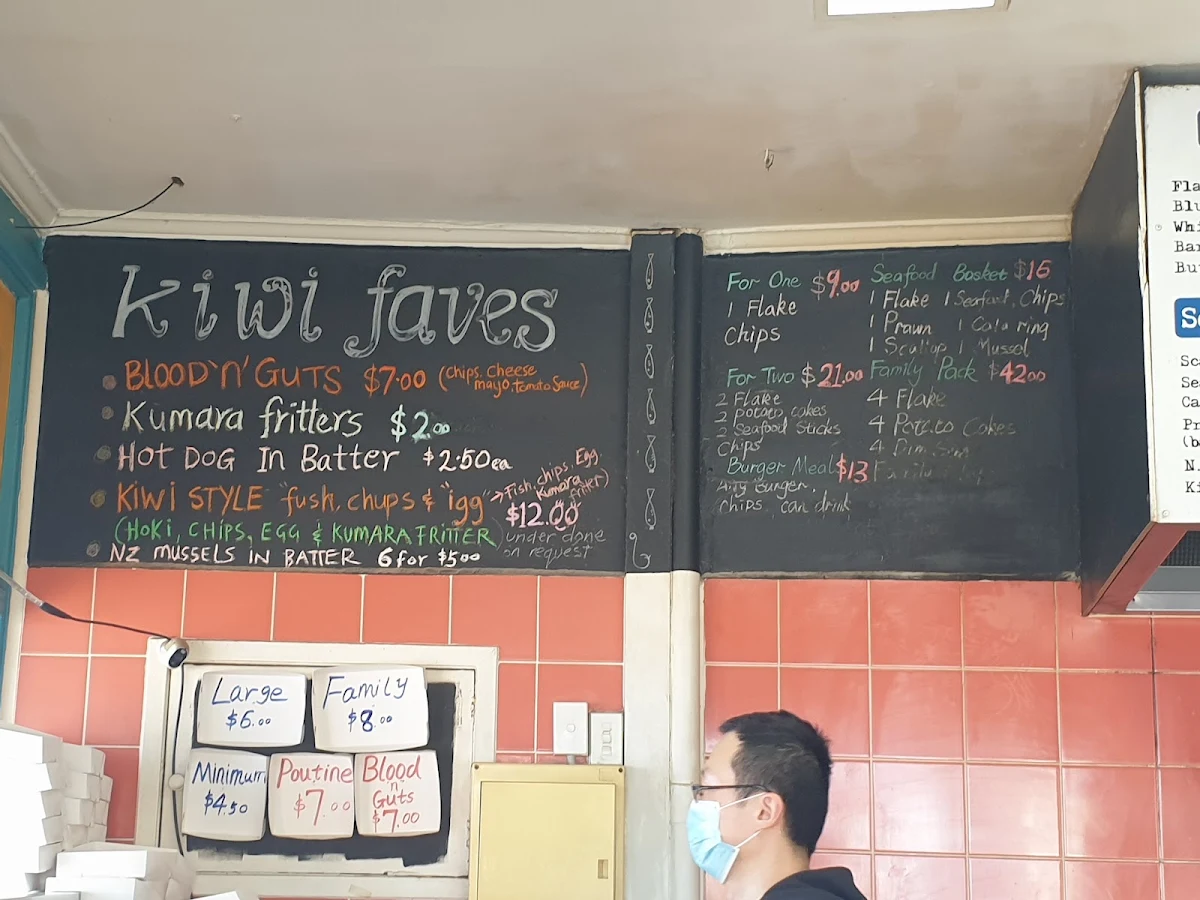 kiwi faves
BLOOD 'N' GUTS $7.00 (chips, cheese
mayo, tomato sauce)
Kumara fritters $2.00
HOT DOG In Batter $2.50ea
KIWI STYLE "fush, chups & "igg" → Fish, chips, Egg
Kumara fritter)
$12.00
(HOKI, CHIPS, EGG & KUMARA FRITTER) under done
on request
NZ MUSSELS IN BATTER 6 for $5.00
For One $9.00
1 Flake
Chips
For Two $21.00
2 Flake
2 potato cakes
2 Seafood Sticks
Chips
Burger Meal $13
Any Burger
Chips, can drink
Seafood Basket $16
1 Flake 1 Seafood, Chips
1 Prawn 1 Cala ring
1 Scallop 1 Mussel
Family Pack $42.00
4 Flake
4 Potato Cakes
4 Dim Sim
Family
Fla
Blu
Whi
Bar
Bu
S
Sc
Se
Ca
Pr
(b
N.
Ki
Large
$6.00
Family
$8.00
Minimum
$4.50
Poutine
$7.00
Blood
'n'
Guts
$7.00